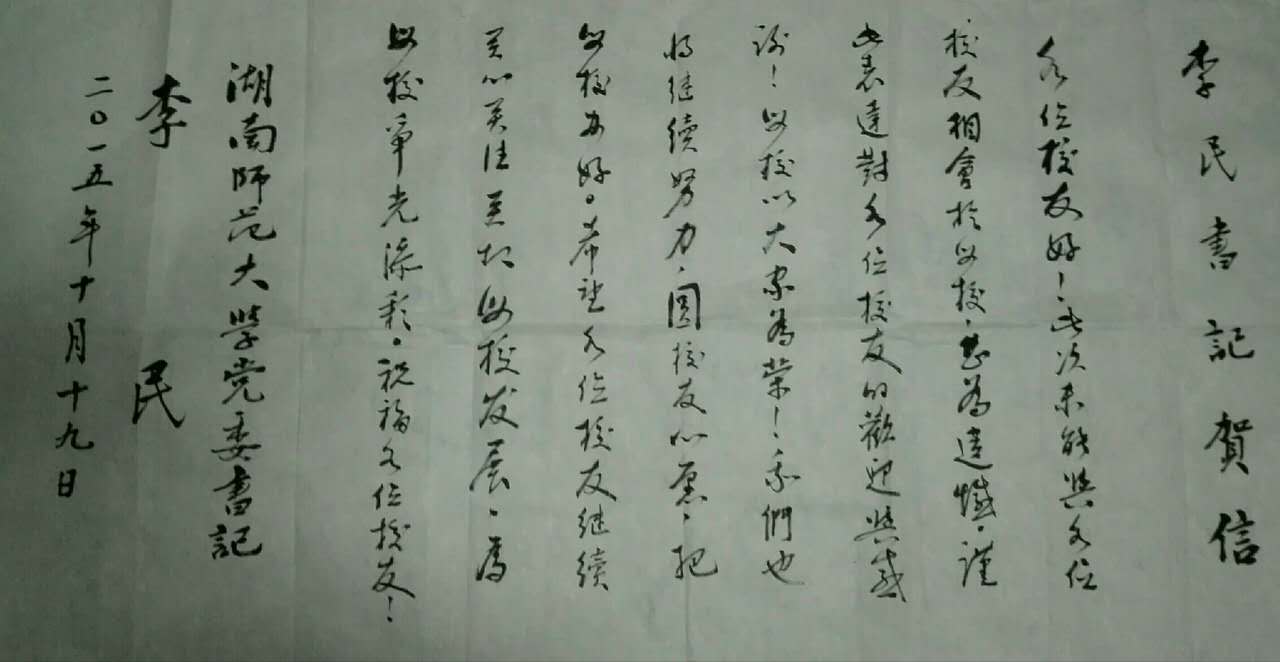 李民書記賀信
各位校友好！此次未能與各位
校友相會於母校，甚為遺憾。謹
此表達對各位校友的歡迎與感
謝！母校以大家為榮！我們也
将继續努力，圆校友心愿，把
母校办好。希望各位校友继續
关心关注支持母校发展，為
母校争光添彩。祝福各位校友！
湖南师范大学党委書記
李民
二〇一五年十月十九日